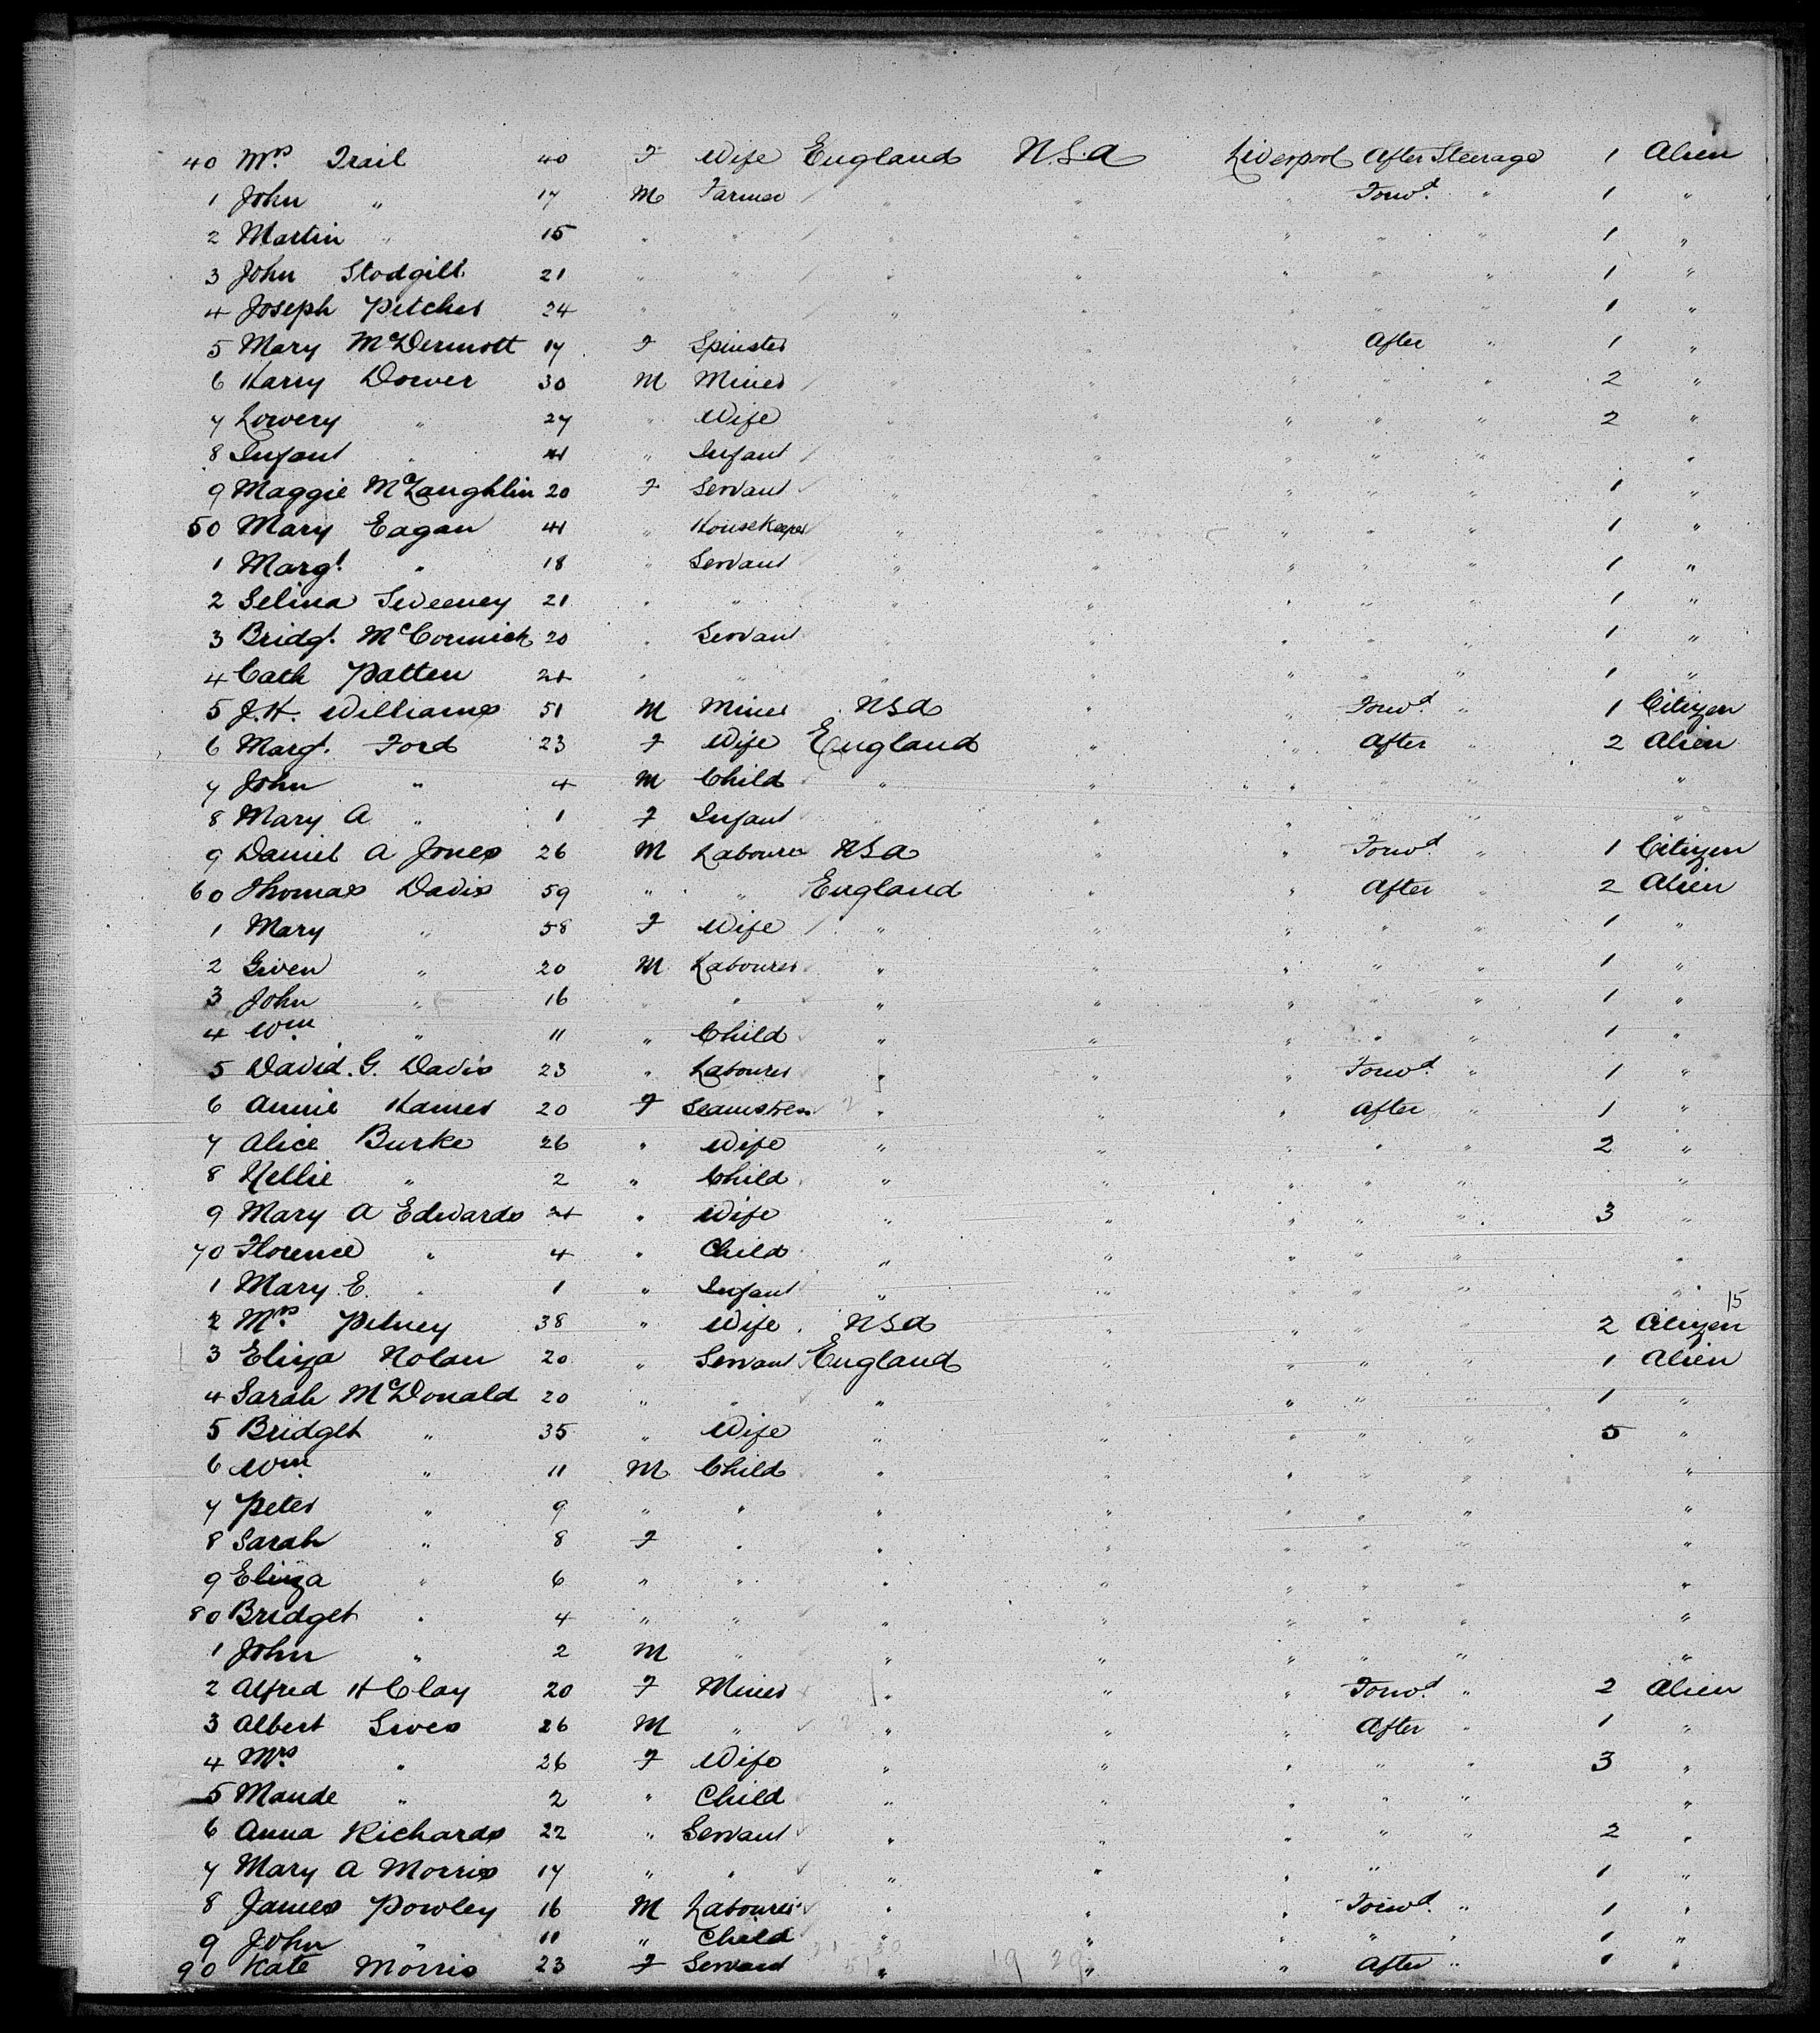 40 Mrs Trail 40 F Wife England USA Liverpool After Steerage 1 Alien
1 John " 17 M Farmer " " " Forwd. " 1 "
2 Martin " 15 " " " " " " " 1 "
3 John Stodgill 21 " " " " " " " 1 "
4 Joseph Pitcher 24 " " " " " " " 1 "
5 Mary McDermott 17 F Spinster " " " After " 1 "
6 Harry Dower 30 M Miner " " " " " 2 "
7 Lowery " 27 " Wife " " " " " 2 "
8 Infant " " Infant " " " " " "
9 Maggie McLaughlin 20 F Servant " " " " " 1 "
50 Mary Eagan 41 " Housekeeper " " " " " 1 "
1 Margt. " 18 " Servant " " " " " 1 "
2 Selina Sweeney 21 " " " " " " " 1 "
3 Bridgt. McCormick 20 " Servant " " " " " 1 "
4 Cath Patten 21 " " " " " " " 1 "
5 J.H. Williams 51 M Miner USA " " Forwd. " 1 Citizen
6 Margt. Ford 23 F Wife England " " After " 2 Alien
7 John " 4 M Child " " " " " "
8 Mary A " 1 F Infant " " " " " "
9 Daniel A Jones 26 M Labourer USA " " Forwd. " 1 Citizen
60 Thomas Davis 59 " " England " " After " 2 Alien
1 Mary " 58 F Wife " " " " " 1 "
2 Gwen " 20 M Labourer " " " " " 1 "
3 John " 16 " " " " " " " 1 "
4 Wm. " 11 " Child " " " " " 1 "
5 David. G. Davis 23 " Labourer " " " Forwd. " 1 "
6 Annie Hamer 20 F Seamstress " " " After " 1 "
7 Alice Burke 26 " Wife " " " " " 2 "
8 Nellie " 2 " Child " " " " " "
9 Mary A Edwards 21 " Wife " " " " " 3 "
70 Florence " 4 " Child " " " " " "
1 Mary. E. " 1 " Infant " " " " " "
15
2 Mrs. Pitney 38 " Wife USA " " " " 2 Citizen
3 Eliza Nolan 20 " Servant England " " " " 1 Alien
4 Sarah McDonald 20 " " " " " " " 1 "
5 Bridget " 35 " Wife " " " " " 5 "
6 Wm. " 11 M Child " " " " " "
7 Peter " 9 " " " " " " " "
8 Sarah " 8 F " " " " " " "
9 Eliza " 6 " " " " " " " "
80 Bridget " 4 " " " " " " " "
1 John " 2 M " " " " " " "
2 Alfred H Clay 20 F Miner " " " Forwd. " 2 Alien
3 Albert Sives 26 M " " " " After " 1 "
4 Mrs. " 26 F Wife " " " " " 3 "
5 Maude " 2 " Child " " " " " "
6 Anna Richards 22 " Servant " " " " " 2 "
7 Mary A Morris 17 " " " " " " " 1 "
8 James Powley 16 M Labourer " " " Forwd. " 1 "
9 John " 11 " Child " " " " " 1 "
90 Kate Morris 23 F Servant " 19 29 " " After " 1 "